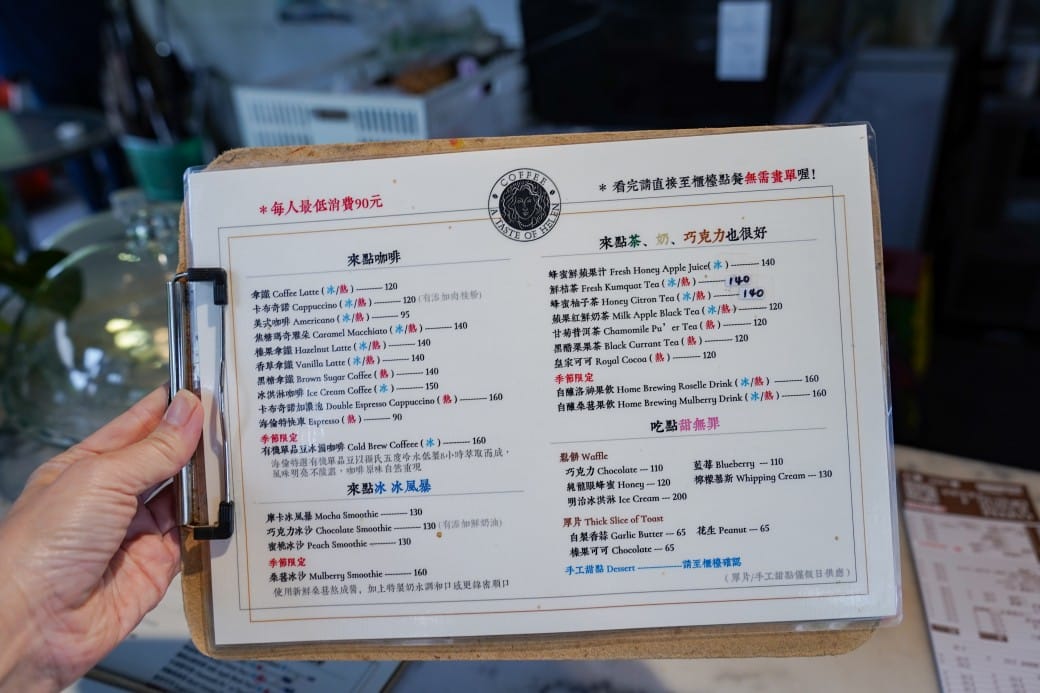 COFFEE
A TASTE OF HELEN
*每人最低消費90元
*看完請直接至櫃檯點餐無需畫單喔!
來點咖啡
拿鐵 Coffee Latte (冰/熱) ---------- 120
卡布奇諾 Cappuccino (冰/熱) ---------- 120 (有添加肉桂粉)
美式咖啡 Americano (冰/熱) ---------- 95
焦糖瑪奇雅朵 Caramel Macchiato (冰/熱) ---------- 140
榛果拿鐵 Hazelnut Latte (冰/熱) ---------- 140
香草拿鐵 Vanilla Latte (冰/熱) ---------- 140
黑糖拿鐵 Brown Sugar Coffee (熱) ---------- 140
冰淇淋咖啡 Ice Cream Coffee (冰) ---------- 150
卡布奇諾加濃泡 Double Espresso Cappuccino (熱) ---------- 160
海倫特快車 Espresso (熱) ---------- 90
季節限定
有機單品豆冰滴咖啡 Cold Brew Coffeee (冰) ---------- 160
海倫特選有機單品豆以攝氏五度冷水低製8小時萃取而成,
風味明亮不酸澀,咖啡原味自然重現
來點冰 冰風暴
摩卡冰風暴 Mocha Smoothie ---------- 130
巧克力冰沙 Chocolate Smoothie ---------- 130 (有添加鮮奶油)
蜜桃冰沙 Peach Smoothie ---------- 130
季節限定
桑葚冰沙 Mulberry Smoothie ---------- 160
使用新鮮桑葚熬成醬,加上特製奶水調和口感更綿密順口
來點茶、奶、巧克力也很好
蜂蜜鮮蘋果汁 Fresh Honey Apple Juice(冰) ---------- 140
鮮桔茶 Fresh Kumquat Tea (冰/熱) ---------- 140
蜂蜜柚子茶 Honey Citron Tea (冰/熱) ---------- 140
蘋果紅鮮奶茶 Milk Apple Black Tea (冰/熱) ---------- 120
甘菊普洱茶 Chamomile Pu’er Tea (熱) ---------- 120
黑醋栗果茶 Black Currant Tea (熱) ---------- 120
皇家可可 Royal Cocoa (熱) ---------- 120
季節限定
自釀洛神果飲 Home Brewing Roselle Drink (冰/熱) ---------- 160
自釀桑葚果飲 Home Brewing Mulberry Drink (冰/熱) ---------- 160
吃點甜無罪
鬆餅 Waffle
巧克力 Chocolate --- 110 藍莓 Blueberry --- 110
純龍眼蜂蜜 Honey --- 120 檸檬慕斯 Whipping Cream --- 130
明治冰淇淋 Ice Cream --- 200
厚片 Thick Slice of Toast
自製香蒜 Garlic Butter --- 65 花生 Peanut --- 65
榛果可可 Chocolate --- 65
手工甜點 Dessert ----------------請至櫃檯確認
(厚片/手工甜點僅假日供應)